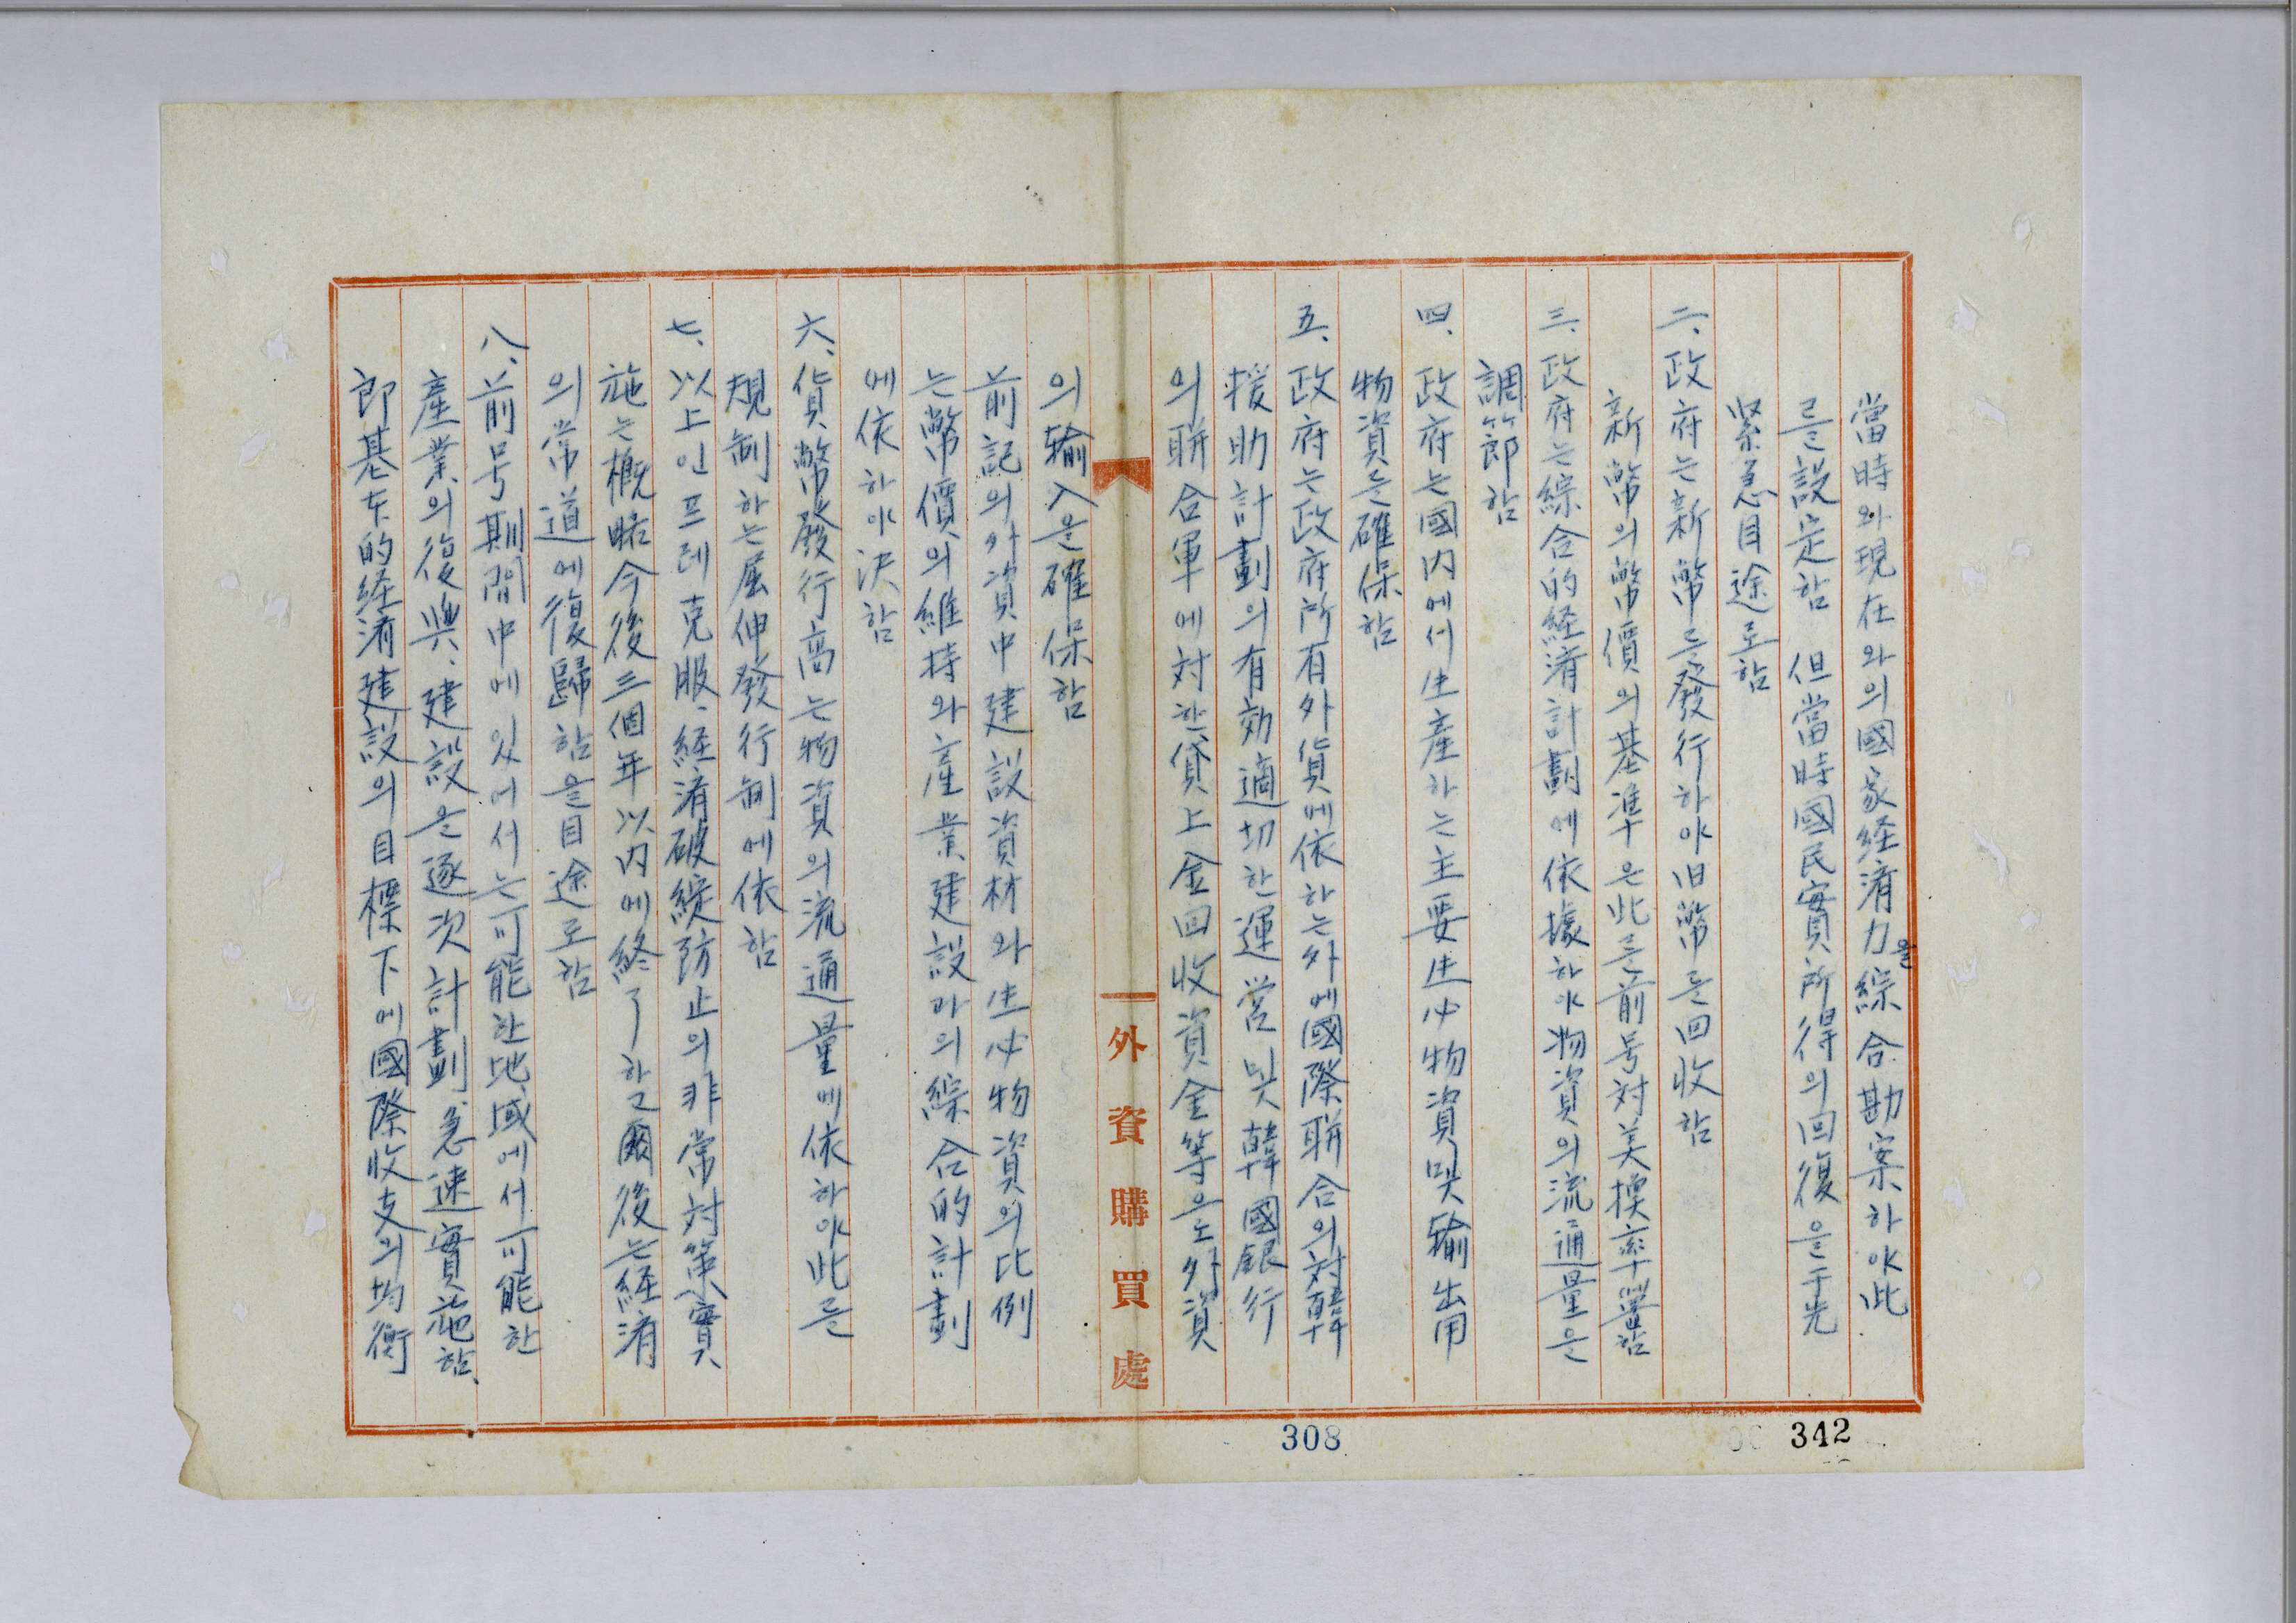 當時와現在와의國家経済力을綜合勘案하야此
를設定함 但當時國民實所得의回復을于光
緊急目途로함
二、政府는新幣를發行하야旧幣를回收함
新幣의幣價의基準은此를前号対美換率에置함
三、政府는綜合的経済計劃에依據하야物資의流通量을
調節함
四、政府는國内에서生産하는主要生必物資및輸出用
物資를確保함
五、政府는政府所有外貨에依하는外에國際聯合의対韓
援助計劃의有効適切한運営및韓國銀行
의聯合軍에対한貸上金回收資金等으로外資
의輸入을確保함
前記의外資中建設資材와生必物資의比例
는幣價의維持와産業建設과의綜合的計劃
에依하야決함
六、貨幣發行高는物資의流通量에依하야此를
規制하는屈伸發行制에依함
七、以上인프레克服、経済破綻防止의非常対策實
施는概略今後三個年以内에終了하고爾後는経済
의常道에復歸함을目途로함
八、前号期間中에있어서는可能한地域에서可能한
産業의復興、建設을逐次計劃、急速實施함、
即基本的経済建設의目標下에國際收支의均衡
外資購買處
308
342